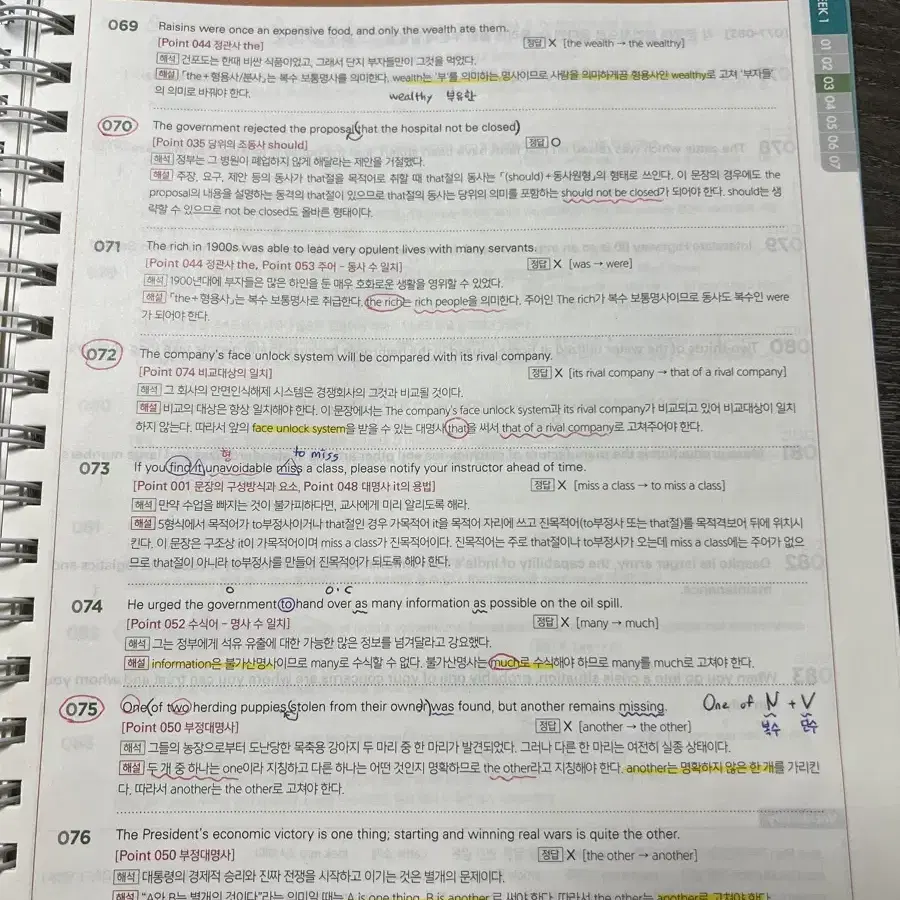 EEK 1
01
02
03
04
05
06
07
069 Raisins were once an expensive food, and only the wealth ate them.
[Point 044 정관사 the] 정답 X [the wealth → the wealthy]
해석 건포도는 한때 비싼 식품이었고, 그래서 단지 부자들만이 그것을 먹었다.
해설 「the+형용사/분사」는 복수 보통명사를 의미한다. wealth는 '부'를 의미하는 명사이므로 사람을 의미하게끔 형용사인 wealthy로 고쳐 '부자들'
의 의미로 바꿔야 한다.
wealthy 부유한
070 The government rejected the proposal that the hospital not be closed
[Point 035 당위의 조동사 should] 정답 O
해석 정부는 그 병원이 폐업하지 않게 해달라는 제안을 거절했다.
해설 주장, 요구, 제안 등의 동사가 that절을 목적어로 취할 때 that절의 동사는 「(should)+동사원형」의 형태로 쓰인다. 이 문장의 경우에도 the
proposal의 내용을 설명하는 동격의 that절이 있으므로 that절의 동사는 당위의 의미를 포함하는 should not be closed가 되어야 한다. should는 생
략할 수 있으므로 not be closed도 올바른 형태이다.
071 The rich in 1900s was able to lead very opulent lives with many servants.
[Point 044 정관사 the, Point 053 주어 - 동사 수 일치] 정답 X [was → were]
해석 1900년대에 부자들은 많은 하인을 둔 매우 호화로운 생활을 영위할 수 있었다.
해설 「the+형용사」는 복수 보통명사로 취급한다. the rich는 rich people을 의미한다. 주어인 The rich가 복수 보통명사이므로 동사도 복수인 were
가 되어야 한다.
072 The company's face unlock system will be compared with its rival company.
[Point 074 비교대상의 일치] 정답 X [its rival company → that of a rival company]
해석 그 회사의 안면인식해제 시스템은 경쟁회사의 그것과 비교될 것이다.
해설 비교의 대상은 항상 일치해야 한다. 이 문장에서는 The company's face unlock system과 its rival company가 비교되고 있어 비교대상이 일치
하지 않는다. 따라서 앞의 face unlock system을 받을 수 있는 대명사 that을 써서 that of a rival company로 고쳐주어야 한다.
형 to miss
073 If you find it unavoidable miss a class, please notify your instructor ahead of time.
[Point 001 문장의 구성방식과 요소, Point 048 대명사 it의 용법] 정답 X [miss a class → to miss a class]
해석 만약 수업을 빠지는 것이 불가피하다면, 교사에게 미리 알리도록 해라.
해설 5형식에서 목적어가 to부정사이거나 that절인 경우 가목적어 it을 목적어 자리에 쓰고 진목적어(to부정사 또는 that절)를 목적격보어 뒤에 위치시
킨다. 이 문장은 구조상 it이 가목적어이며 miss a class가 진목적어이다. 진목적어는 주로 that절이나 to부정사가 오는데 miss a class에는 주어가 없으
므로 that절이 아니라 to부정사를 만들어 진목적어가 되도록 해야 한다.
O O·C
074 He urged the government to hand over as many information as possible on the oil spill.
[Point 052 수식어 - 명사 수 일치] 정답 X [many → much]
해석 그는 정부에게 석유 유출에 대한 가능한 많은 정보를 넘겨달라고 강요했다.
해설 information은 불가산명사이므로 many로 수식할 수 없다. 불가산명사는 much로 수식해야 하므로 many를 much로 고쳐야 한다.
075 One of two herding puppies stolen from their owner was found, but another remains missing. One of N + V
복수 단수
[Point 050 부정대명사] 정답 X [another → the other]
해석 그들의 농장으로부터 도난당한 목축용 강아지 두 마리 중 한 마리가 발견되었다. 그러나 다른 한 마리는 여전히 실종 상태이다.
해설 두 개 중 하나는 one이라 지칭하고 다른 하나는 어떤 것인지 명확하므로 the other라고 지칭해야 한다. another는 명확하지 않은 한 개를 가리킨
다. 따라서 another는 the other로 고쳐야 한다.
076 The President's economic victory is one thing; starting and winning real wars is quite the other.
[Point 050 부정대명사] 정답 X [the other → another]
해석 대통령의 경제적 승리와 진짜 전쟁을 시작하고 이기는 것은 별개의 문제이다.
해설 "A와 B는 별개의 것이다"라는 의미일 때는 A is one thing, B is another로 써야 한다. 따라서 the other는 another로 고쳐야 한다.